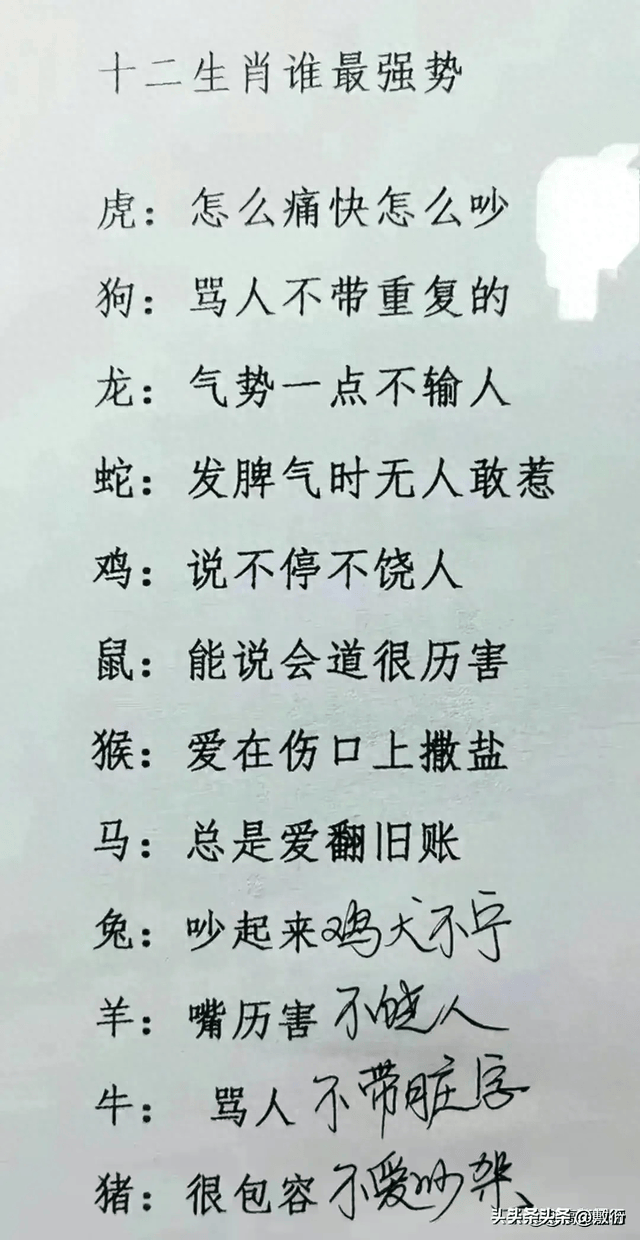 十二生肖谁最强势
虎：怎么痛快怎么吵
狗：骂人不带重复的
龙：气势一点不输人
蛇：发脾气时无人敢惹
鸡：说不停不饶人
鼠：能说会道很历害
猴：爱在伤口上撒盐
马：总是爱翻旧账
兔：吵起来鸡犬不宁
羊：嘴历害不饶人
牛：骂人不带脏字
猪：很包容不爱吵架、
头条